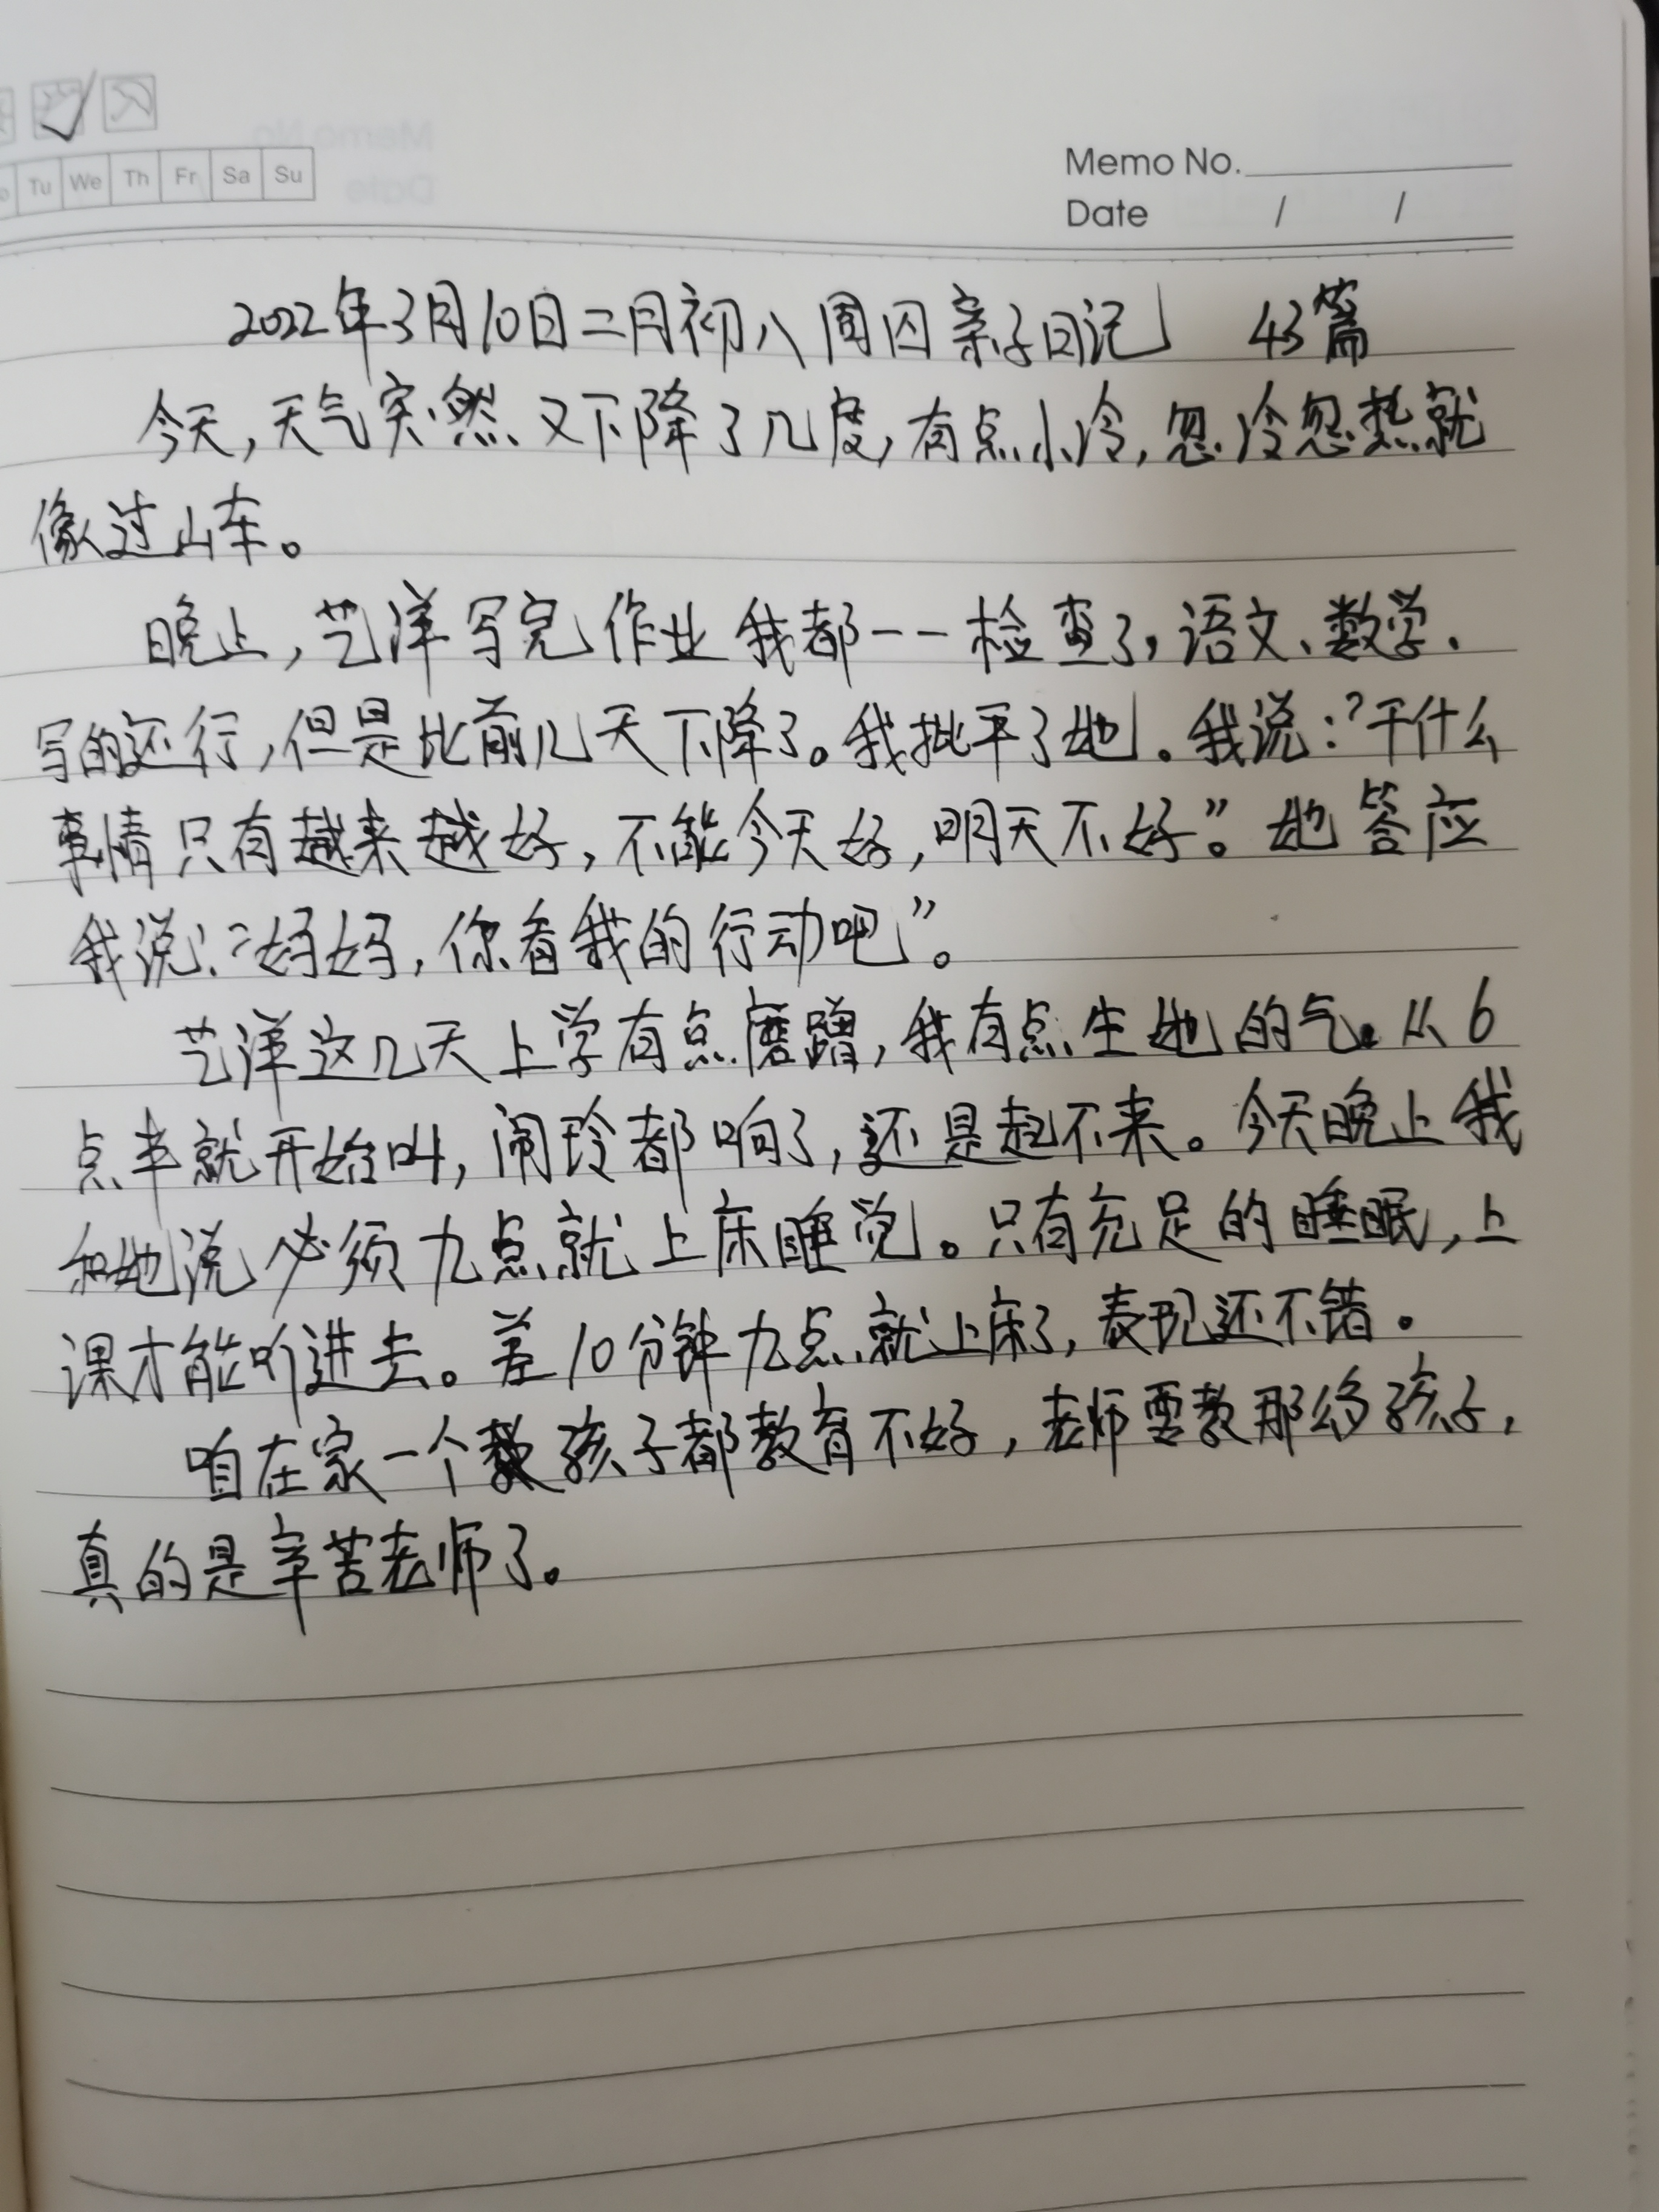 Tu We Th Fr Sa Su
Memo No.
Date / /
2022年3月10日二月初八周四亲子日记 43篇
今天,天气突然又下降了几度,有点小冷,忽冷忽热就
像过山车。
晚上,艺洋写完作业我都一一检查了,语文、数学、
写的还行,但是比前几天下降了。我批平了她。我说:“干什么
事情只有越来越好,不能今天好,明天不好”。她答应
我说:“妈妈,你看我的行动吧”。
艺洋这几天上学有点磨蹭,我有点生她的气。从6
点半就开始叫,闹玲都响了,还是起不来。今天晚上我
和她说必须九点就上床睡觉。只有充足的睡眠,上
课才能听进去。差10分钟九点就上床了,表现还不错。
咱在家一个孩子都教育不好,老师要教那多孩子,
真的是辛苦老师了。